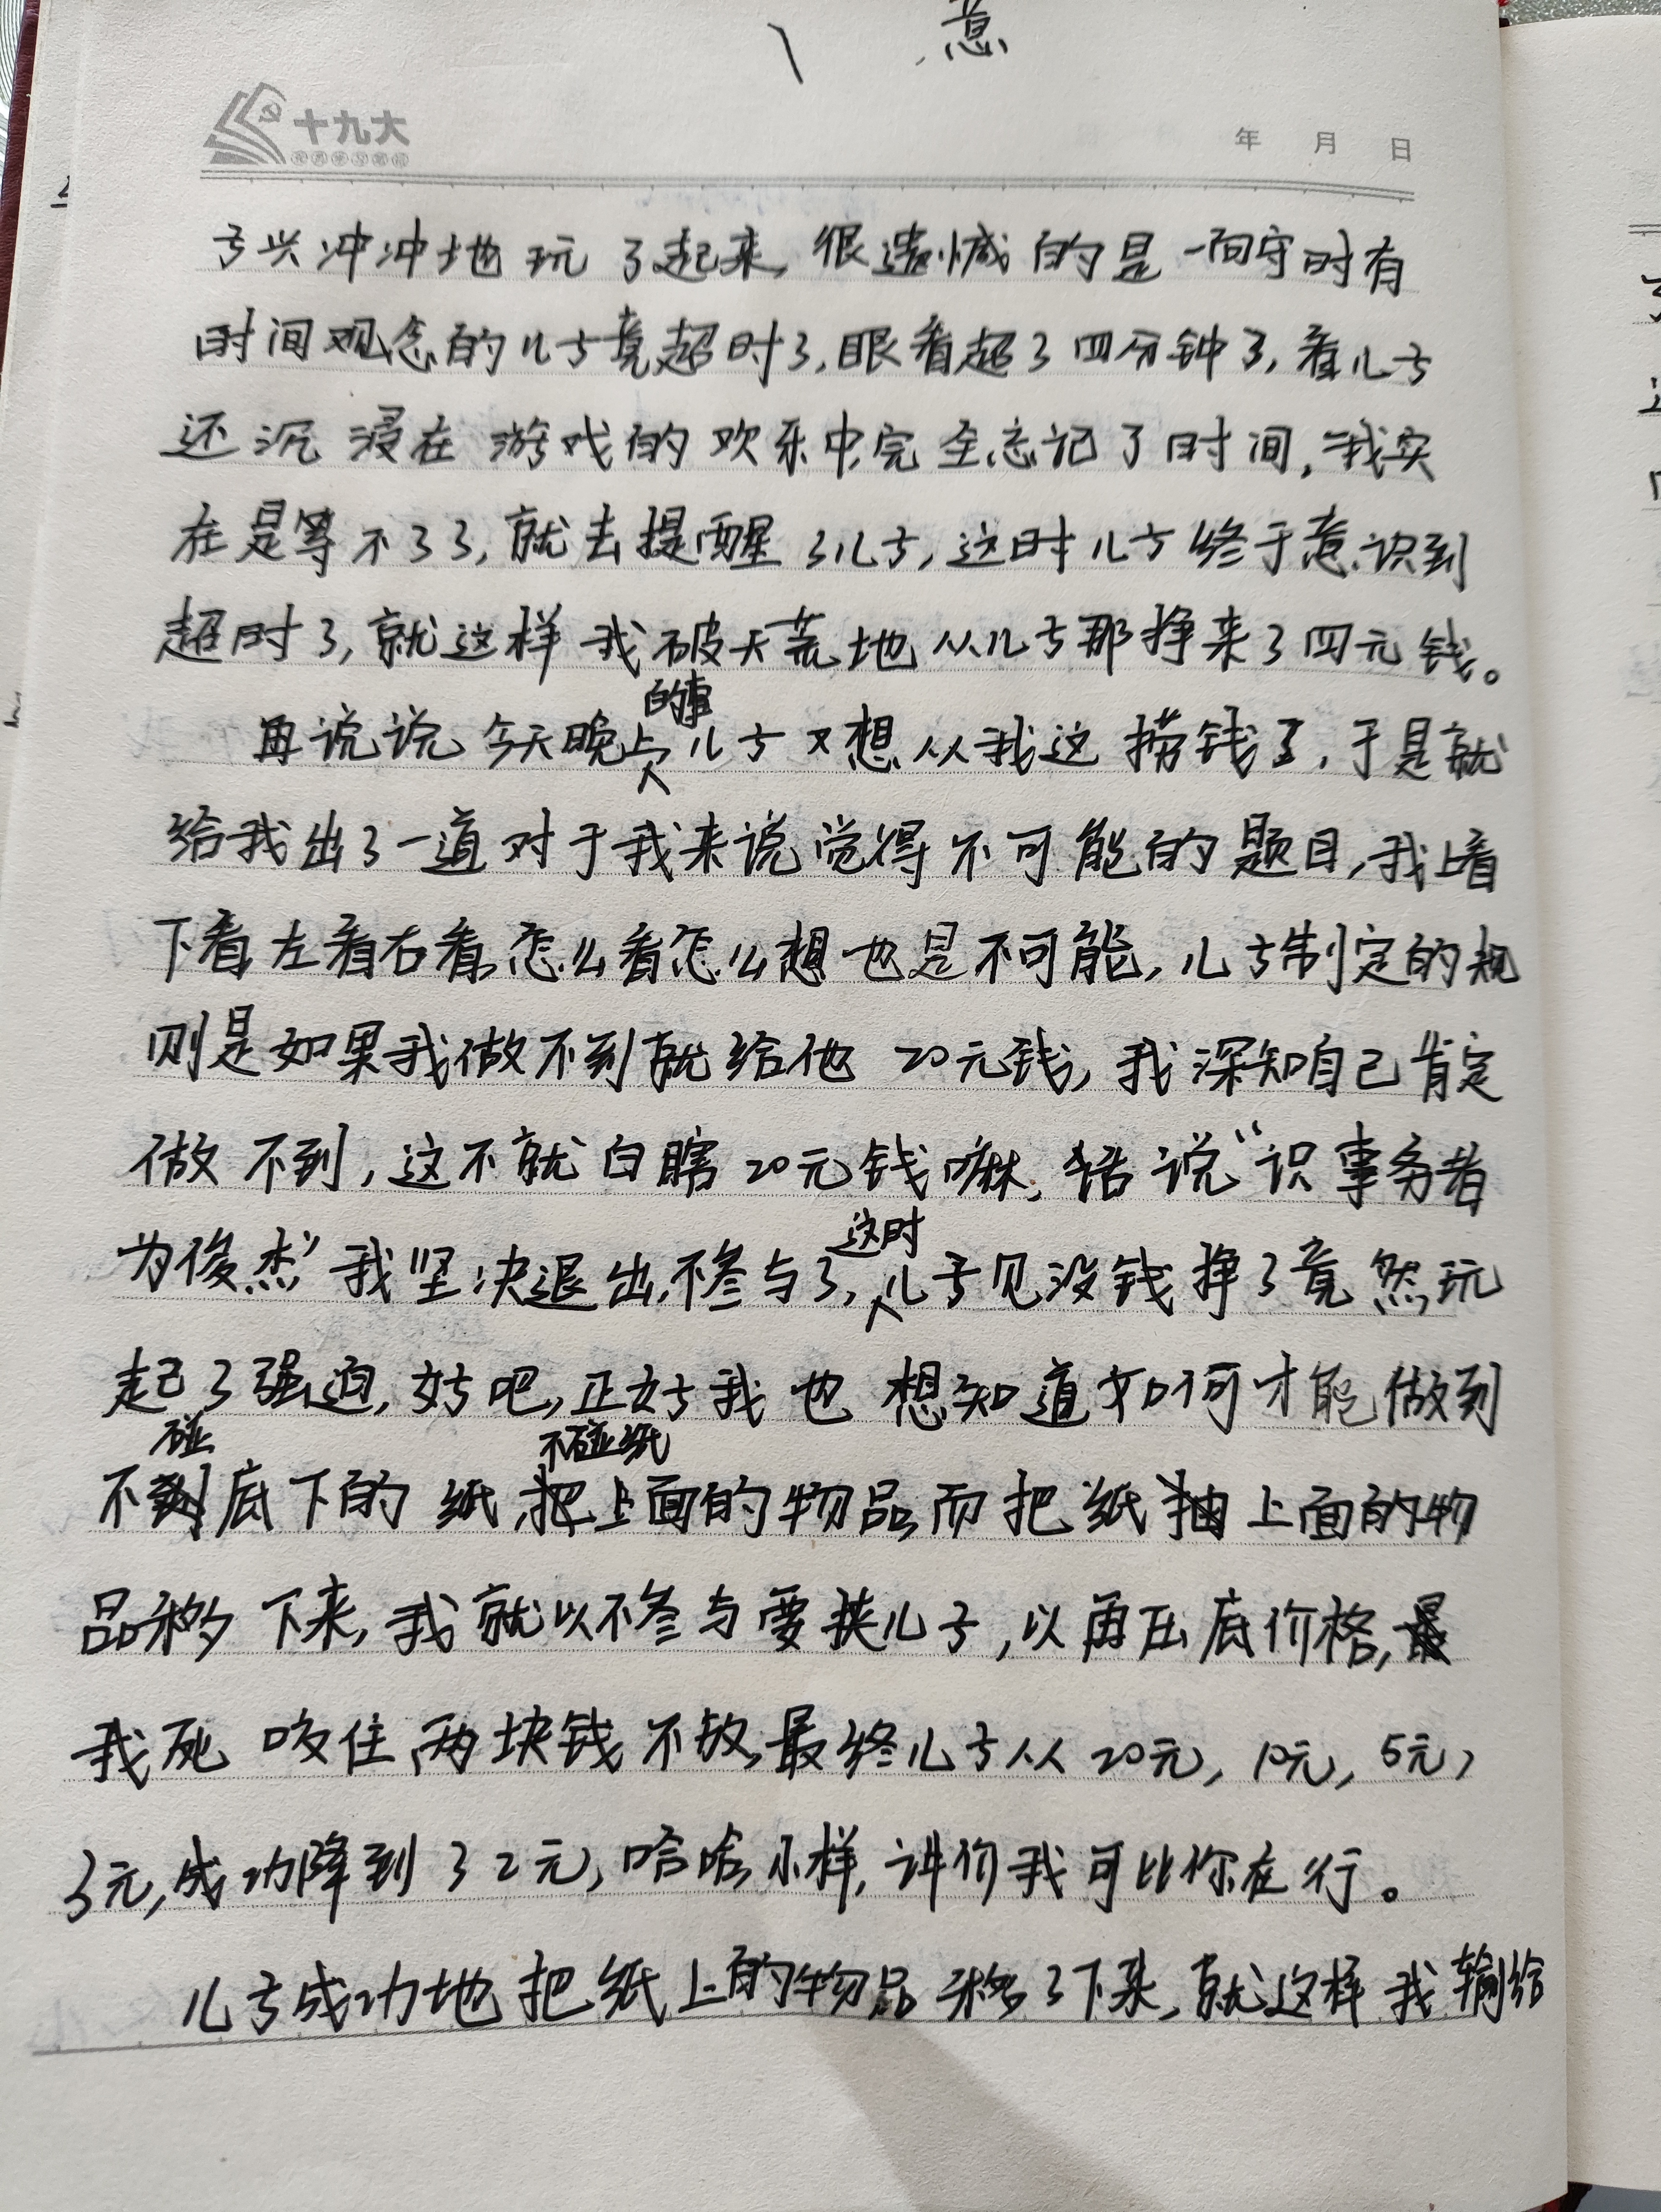 意
十九大
年 月 日
子兴冲冲地玩了起来,很遗憾的是一向守时有
时间观念的儿子竟超时了,眼看超了四分钟了,看儿子
还沉浸在游戏的欢乐中,完全忘记了时间,我实
在是等不了了,就去提醒了儿子,这时儿子终于意识到
超时了,就这样我破天荒地从儿子那挣来了四元钱。
再说说今天晚上的事儿子又想从我这捞钱了,于是就
给我出了一道对于我来说觉得不可能的题目,我上看
下看左看右看,怎么看怎么想也是不可能,儿子制定的规
则是如果我做不到就给他20元钱,我深知自己肯定
做不到,这不就白瞎20元钱嘛,话说“识事务者
为俊杰”我坚决退出,不参与了,这时儿子见没钱挣了竟然玩
起了强迫,好吧,正好我也想知道如何才能做到
不碰底下的纸,不碰纸上面的物品而把纸上面的物
品移下来,我就以不参与要挟儿子,以再压底价格,
我死咬住两块钱不放,最终儿子从20元,10元,5元,
3元,成功降到了2元,哈哈,小样,讲价我可比你在行。
儿子成功地把纸上的物品移了下来,就这样我输给